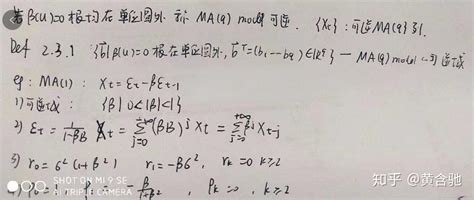 若β(u)=0根均在单位圆外 称 MA(q) model 可逆. {Xt}:可逆MA(q)列.
Def 2.3.1 {b⃗|β(u)=0根在单位圆外, b⃗ᵀ=(b1…bq)∈ℝ^q} — MA(q) model 可逆域
eg: MA(1): Xt=εt-βεt-1
1) 可逆域: {β| 0<|β|<1}
2) εt = 1/(1-βB) Xt = Σ_{j=0}^{+∞}(βB)^j Xt = Σ_{j=0}^{+∞} β^j Xt-j
3) r0=σ²(1+β²) r1=-βσ², rk=0 k≥2
4) ρ0=1 -β/(1+β²), ρk=0, k≥2
SHOT ON MI 9 SE
AI TRIPLE CAMERA
知乎 @黄含驰